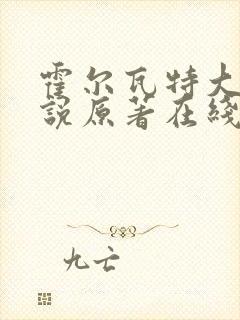 霍尔瓦特大
説原著在綫
九亡